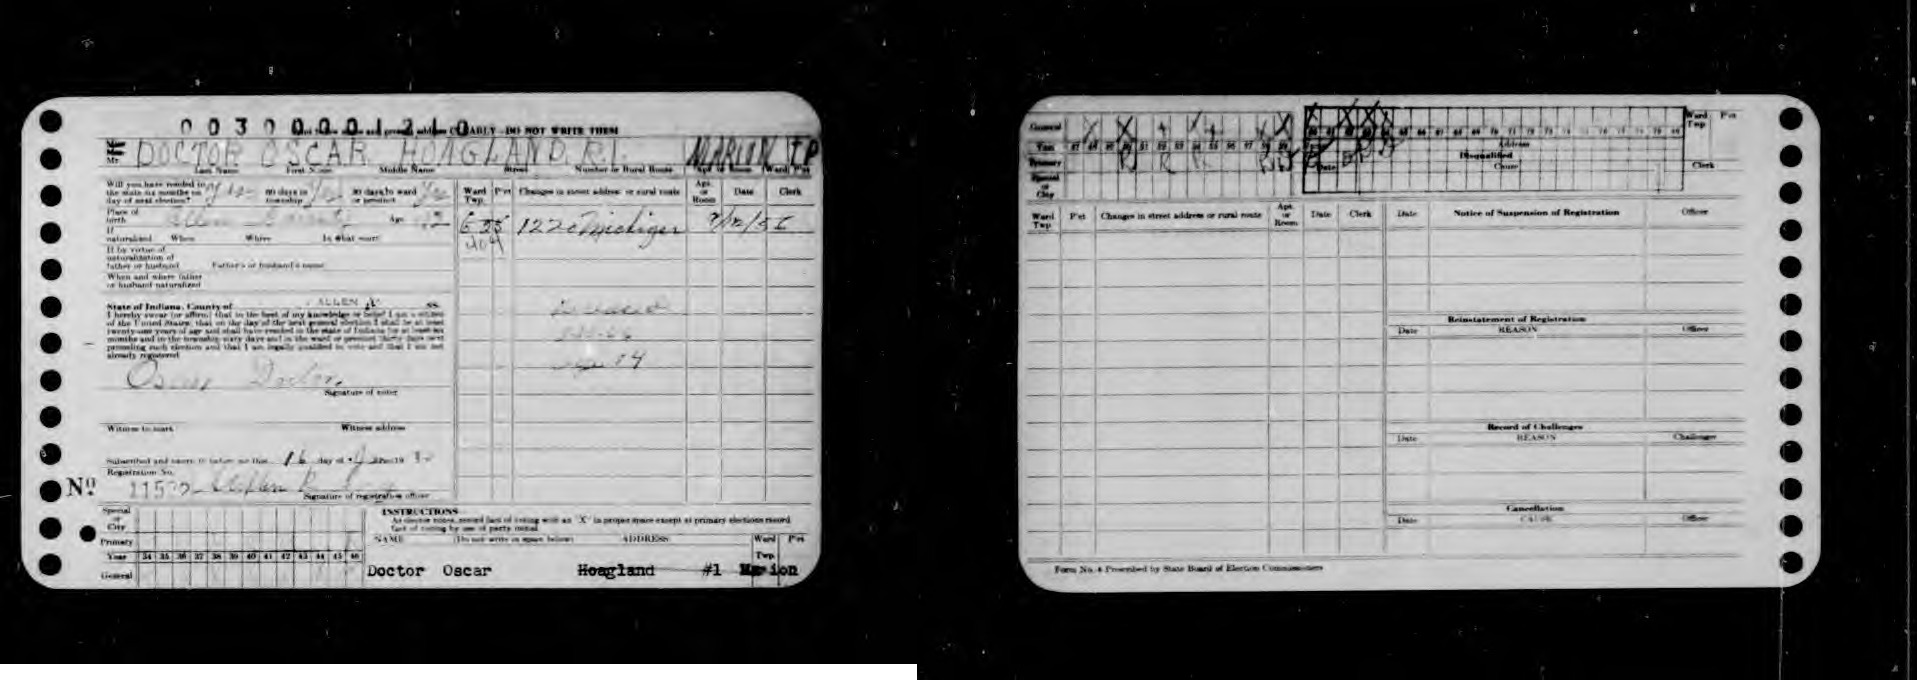 0030001210
CLEARLY - DO NOT WRITE THEM
Mr. DOCTOR OSCAR HOAGLAND R.1. MARION TP
Last Name First Name Middle Name Street Number or Rural Route Apt. or Room Ward P'ct
Will you have resided in
the state six months on Yes 60 days in Yes 30 days in ward Yes
day of next election? township or precinct
Place of
birth Allen County Age
If
naturalized When Where In what court
If by virtue of
naturalization of
father or husband Father's or husband's name
When and where father
or husband naturalized
State of Indiana, County of ALLEN ss.
I hereby swear (or affirm) that to the best of my knowledge or belief I am a citizen
of the United States, that on the day of the next general election I shall be at least
twenty-one years of age and shall have resided in the state of Indiana for at least six
months and in the township sixty days and in the ward or precinct thirty days next
preceding such election and that I am legally qualified to vote and that I am not
already registered
Oscar Doctor
Signature of voter
Witness to mark Witness address
Subscribed and sworn to before me this 16 day of 19
Registration No.
Nº Signature of registration officer
Ward Twp. P'ct Changes in street address or rural route Apt. or Room Date Clerk
1220 Michigan
Special
or
City
Primary
Year 34 35 36 37 38 39 40 41 42 43 44 45 46
General
INSTRUCTIONS
As elector votes, record fact of voting with an "X" in proper space except at primary elections record
fact of voting by use of party initial.
NAME (Do not write in space below) ADDRESS Ward Twp. P'ct
Doctor Oscar Hoagland #1 Marion
General X X X X X X X X X
Year 47 48 49 50 51 52 53 54 55 56 57 58 59
Primary
Special
or
City
Address
Disqualified
Date Cause
Ward Twp P'ct
Clerk
Ward Twp. P'ct Changes in street address or rural route Apt. or Room Date Clerk
Date Notice of Suspension of Registration Officer
Reinstatement of Registration
Date REASON Officer
Record of Challenges
Date REASON Challenger
Cancellation
Date CAUSE Officer
Form No. 4 Prescribed by State Board of Election Commissioners